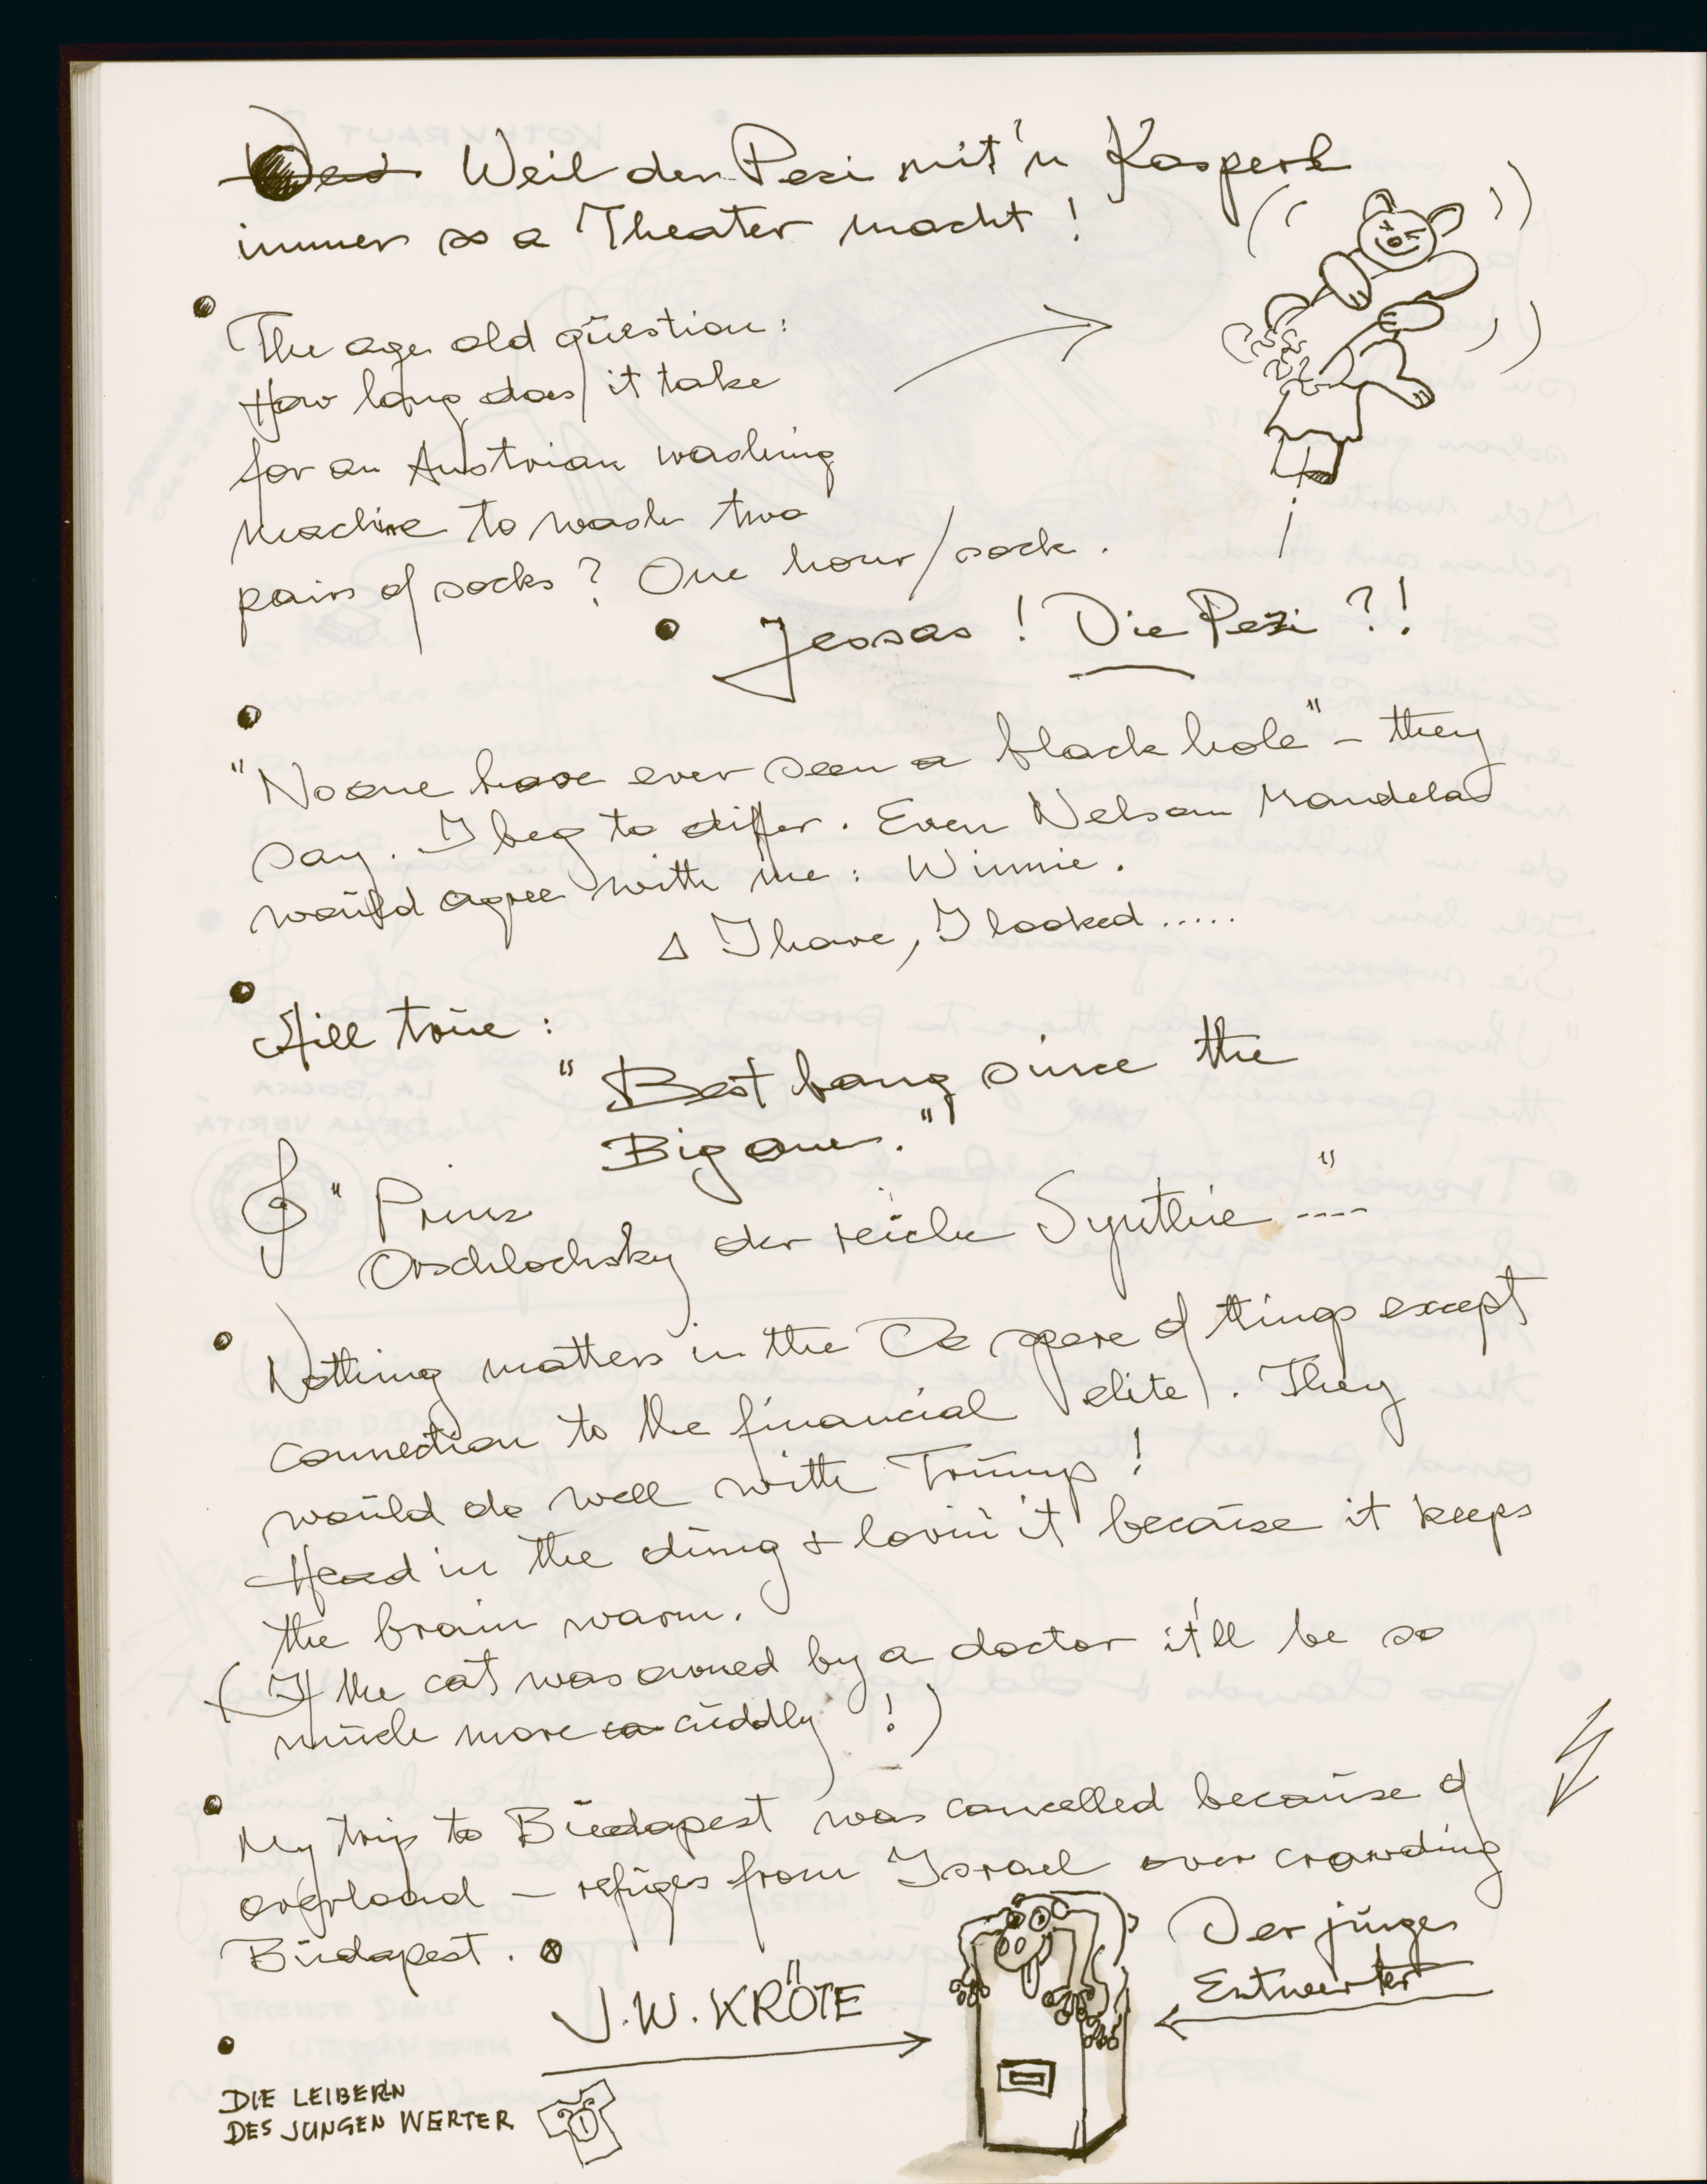 Weil der Pezi mit'n Kasperl
immer so a Theater macht!
The age old question:
How long does it take
for an Austrian washing
machine to wash two
pairs of socks? One hour/sock.
Jessas! Die Pezi?!
"No one have ever seen a black hole" – they
say. I beg to differ. Even Nelson Mandela
would agree with me: Winnie.
I have, I looked.....
Still true:
"Best bang since the
Big one."
"Prinz
Orschlochsky der reiche Synthie ----"
Nothing matters in the of things except
connection to the financial elite. They
would do well with Trump!
Head in the dung & lovin' it because it keeps
the brain warm.
(If the cat was owned by a doctor it'll be so
much more cuddly!)
My trip to Budapest was cancelled because of
overload – refuges from Israel over crowding
Budapest.
Der junges
Entwerter
J.W. KRÖTE
DIE LEIBERLN
DES JUNGEN WERTER